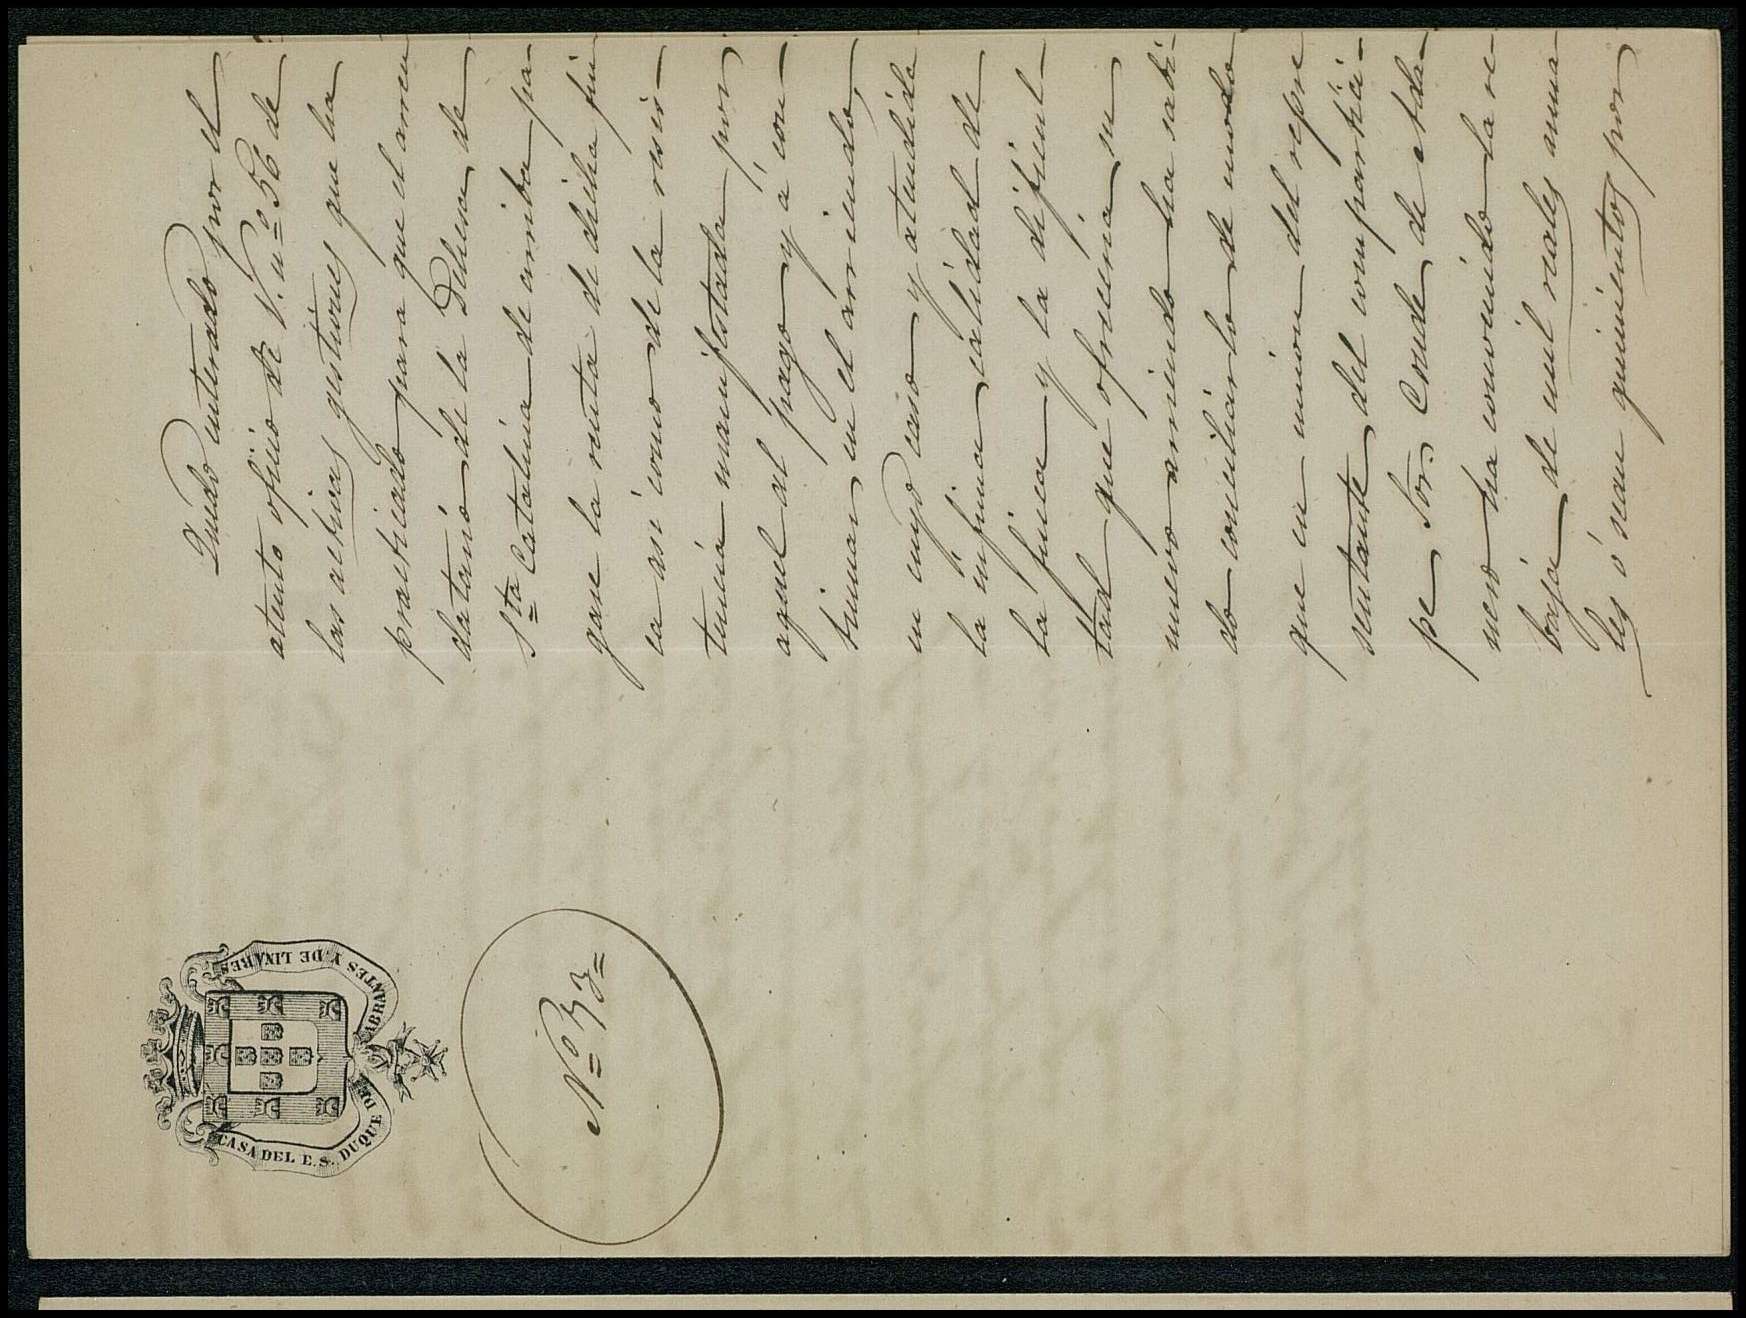 CASA DEL E. S. DUQUE DE ABRANTES Y DE LINARES
Nº 33=
Quedo enterado por el
atento oficio de V. nº 56 de
las activas gestiones que ha
practicado para que el arren
datario de la Dehesa de
Sta Catalina de arriba pa-
gase la renta de dicha fin
ca asi como de la resis-
tencia manifestada por
aquel al pago y á con-
tinuar en el arriendo,
en cuyo caso y atendida
la infima calidad de
la finca y la dificul-
tad que ofreceria su
nuevo arriendo ha sabi-
do conciliarlo de modo
que en union del repre
sentante del compartici-
pe Sor. Conde de
mero ha convenido la re-
baja de mil reales anua
les ó sean quinientos por